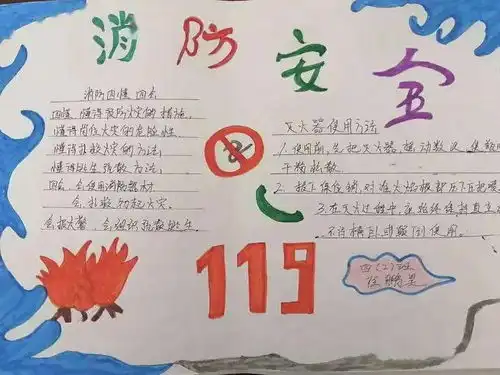 消防安全
消防四懂 四会
四懂 懂得预防火灾的措施,
懂得岗位火灾的危险性
懂得扑救火灾的方法,
懂得逃生疏散方法,
四会 会使用消防器材
会 扑救初起火灾,
会报火警, 会组织疏散逃生
灭火器使用方法
1. 使用前, 先把灭火器摇动数次, 使瓶内
干粉松散
2. 拔下保险销, 对准火焰根部压下压把喷
3. 在灭火过程中, 应始终保持直立
不许横乱或颠倒使用。
119
四(2)班